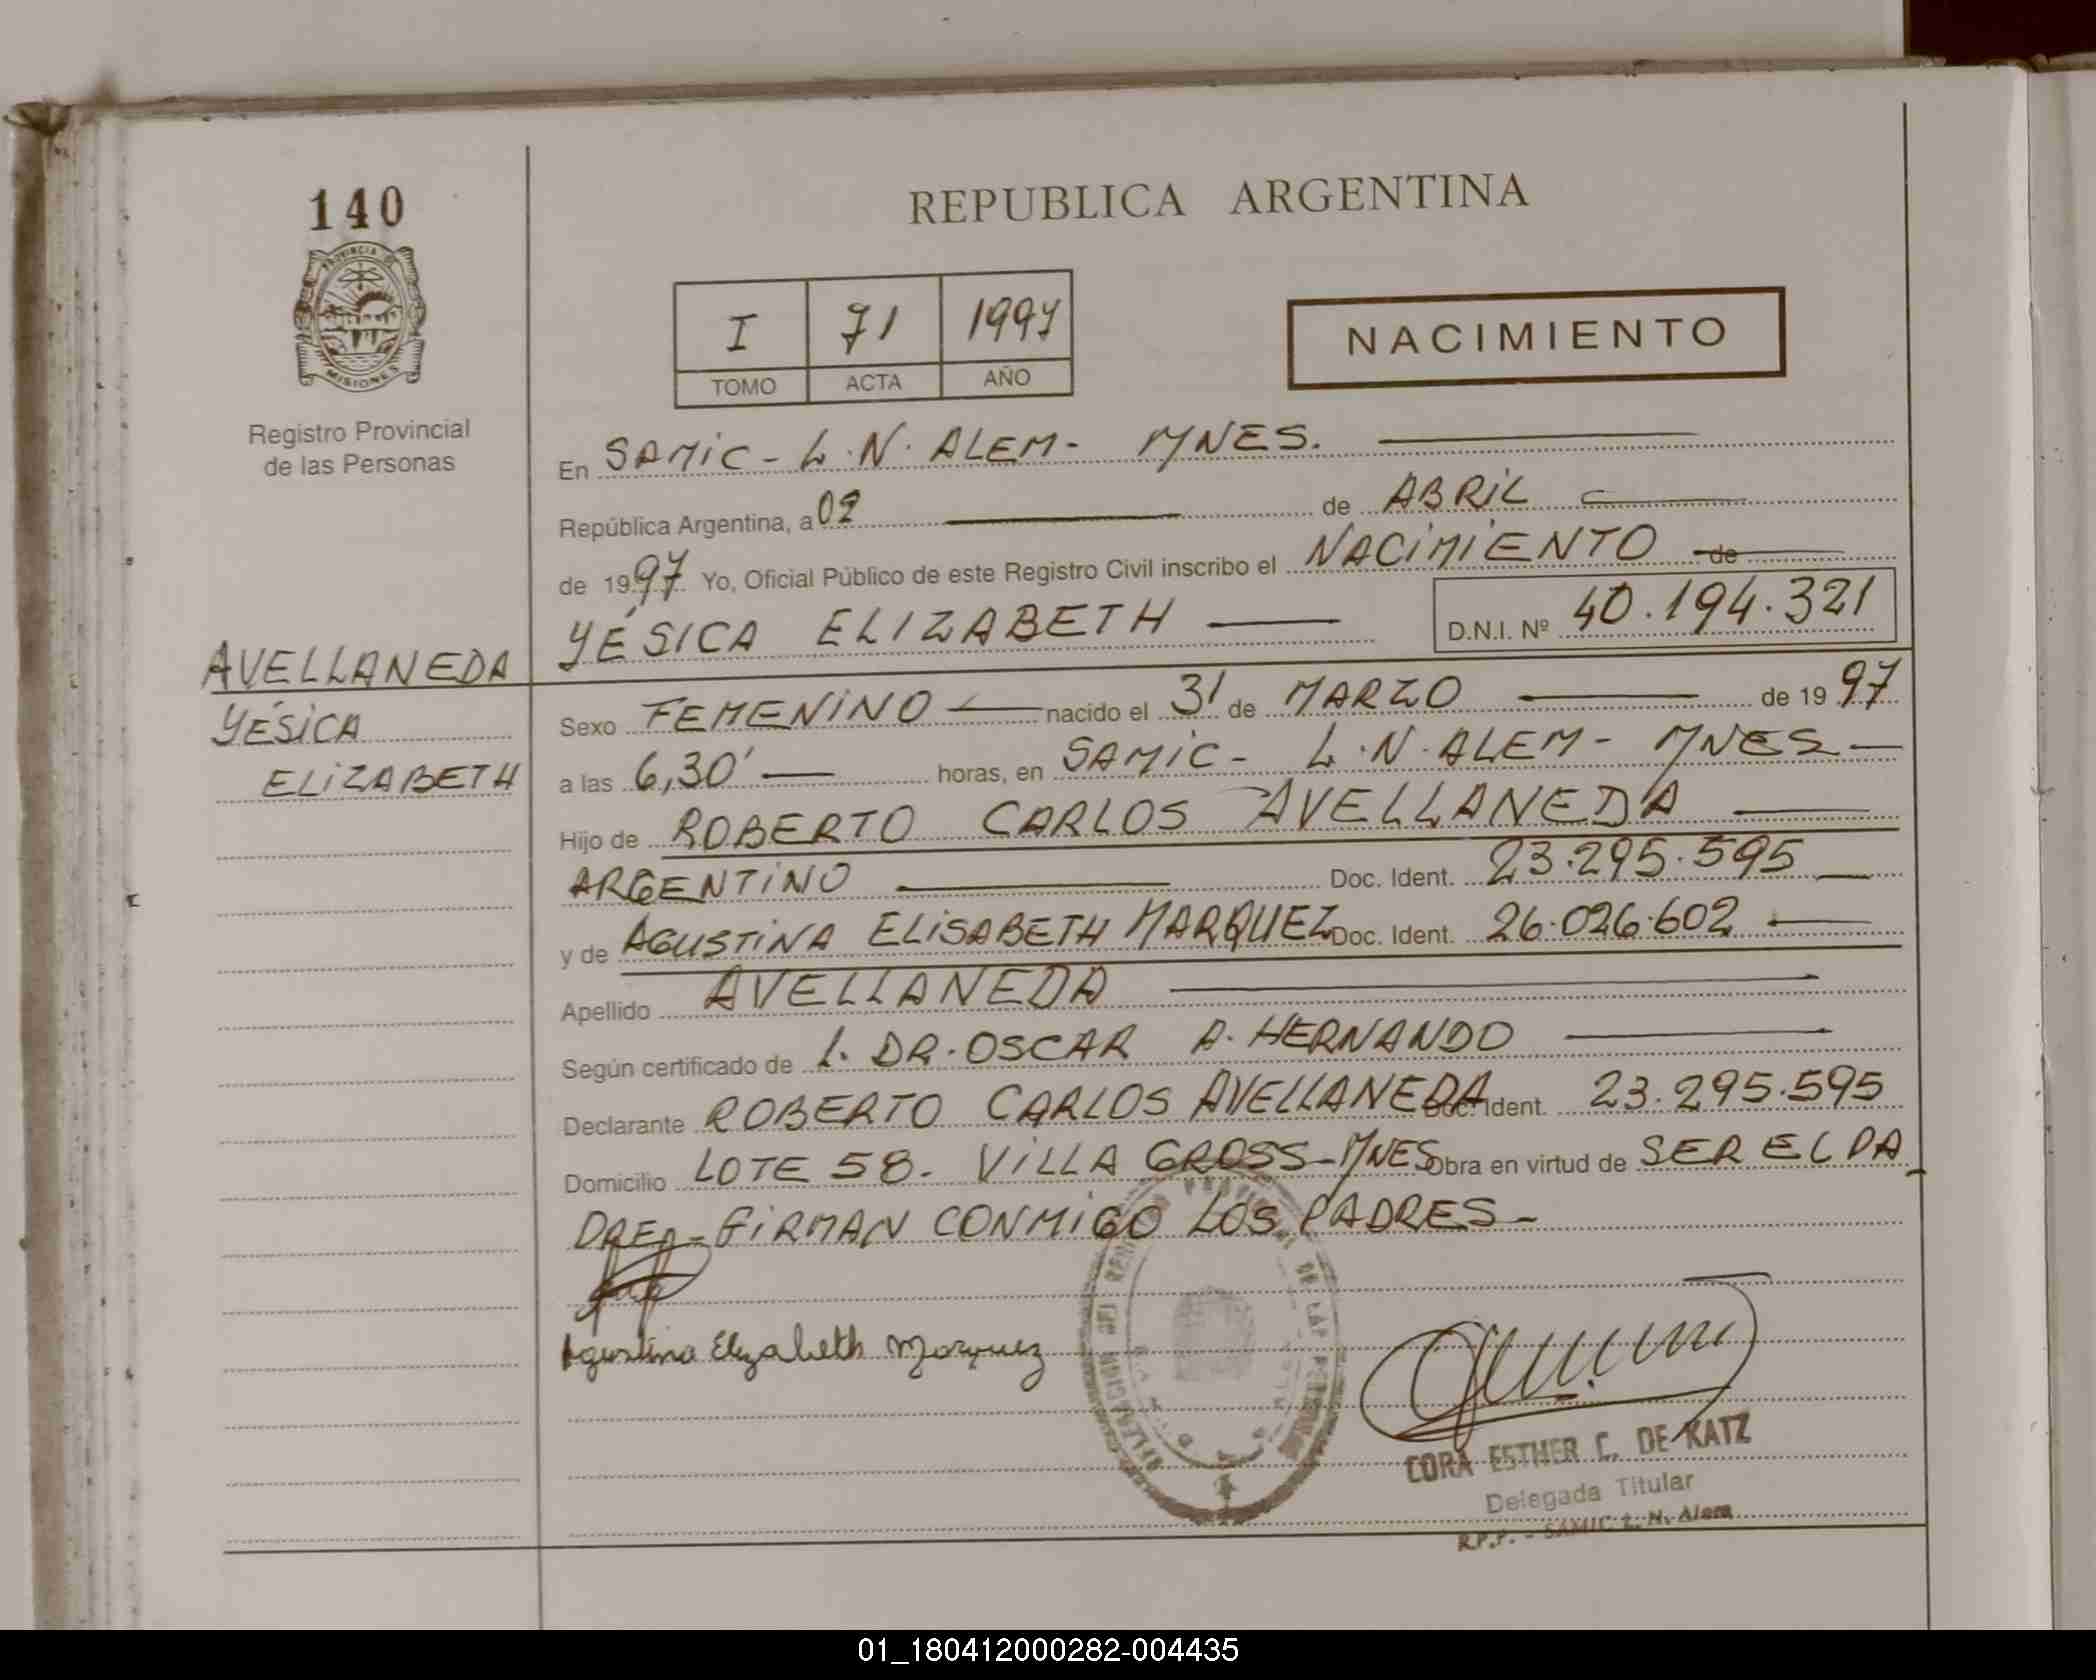 140
PROVINCIA DE
MISIONES
Registro Provincial
de las Personas
AVELLANEDA
YÉSICA
ELIZABETH
REPUBLICA ARGENTINA
I 71 1997
TOMO ACTA AÑO
NACIMIENTO
En SAMIC - L.N. ALEM - MNES.
República Argentina, a 02 de ABRIL
de 1997 Yo, Oficial Público de este Registro Civil inscribo el NACIMIENTO de
YÉSICA ELIZABETH D.N.I. Nº 40.194.321
Sexo FEMENINO nacido el 31 de MARZO de 1997
a las 6,30' horas, en SAMIC - L.N. ALEM - MNES
Hijo de ROBERTO CARLOS AVELLANEDA
ARGENTINO Doc. Ident. 23.295.595
y de AGUSTINA ELISABETH MARQUEZ Doc. Ident. 26.026.602
Apellido AVELLANEDA
Según certificado de L. DR. OSCAR A. HERNANDO
Declarante ROBERTO CARLOS AVELLANEDA Doc. Ident. 23.295.595
Domicilio LOTE 58. VILLA GROSS - MNES Obra en virtud de SER EL PA
DRE - FIRMAN CONMIGO LOS PADRES -
Agustina Elizabeth Marquez
CORA ESTHER C. DE KATZ
Delegada Titular
R.P.P. - SAMIC L. N. Alem
01_180412000282-004435